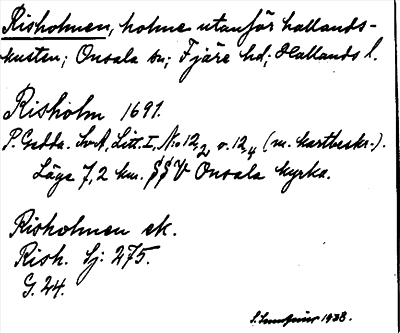 Risholmen, holme utanför hallands-
kusten; Onsala sn; Fjäre hd; Hallands l.
Risholm 1691.
P. Gedda. SvA, Litt. I, No 12,2 o. 12,4 (m. kartbeskr.).
Läge 7,2 km. SSV Onsala kyrka.
Risholmen ek.
Rish. Sj: 275.
G. 24.
1938.